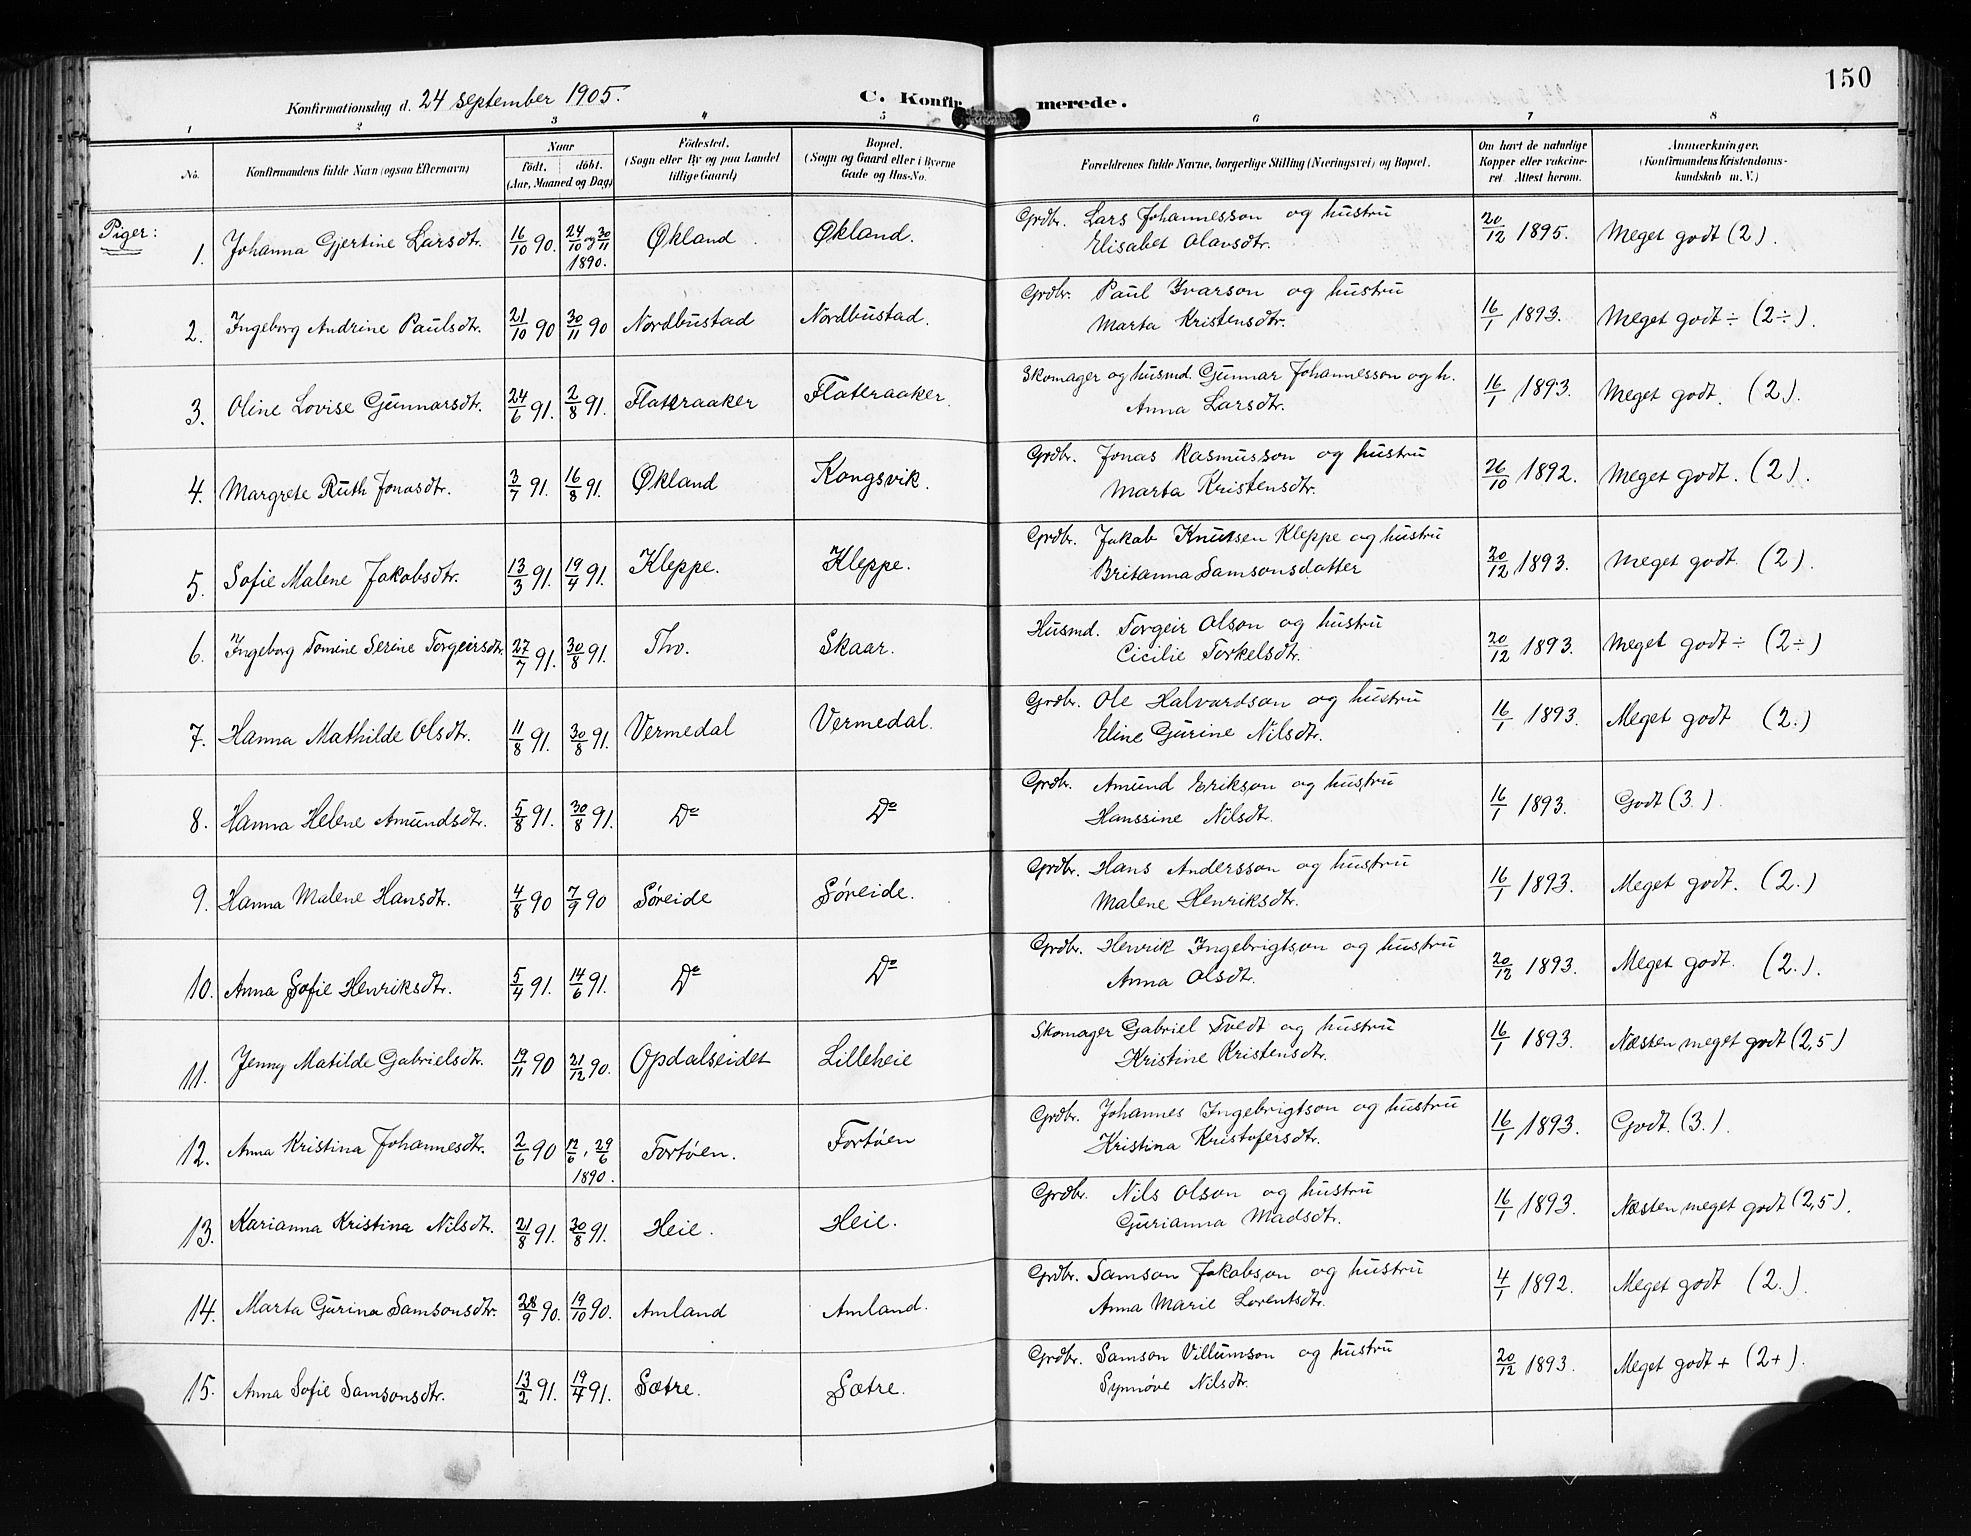 150
Konfirmationsdag d. 24 september 1905.
C. Konfir merede.
1 2 3 4 5 6 7 8
No. Konfirmandens fulde Navn (ogsaa Efternavn) Naar født. døbt. (Aar, Maaned og Dag) Fødested. (Sogn eller By og paa Landet tillige Gaard) Bopæl. (Sogn og Gaard eller i Byerne Gade og Hus-No. Forældrenes fulde Navne, borgerlige Stilling (Næringsvei) og Bopæl. Om havt de naturlige Kopper eller vaccineret. Attest herom. Anmerkninger. (Konfirmandens Kristendomskundskab m. V.)
Piger:
1. Johanna Gjertine Larsdtr. 16/10 90. 24/10 og 30/11 1890. Økland Økland. Grdbr. Lars Johannesson og hustru Elisabet Olavsdtr. 20/12 1895. Meget godt (2).
2. Ingeborg Andrine Paulsdtr. 21/10 90 30/11 90 Nordbustad Nordbustad. Grdbr. Paul Ivarson og hustru Marta Kristensdtr. 16/1 1893. Meget godt ÷ (2÷).
3. Oline Lovise Gunnarsdtr. 24/6 91. 2/8 91. Flateraaker Flateraaker. Skomager og husmd. Gunnar Johannesson og h. Anna Larsdtr. 16/1 1893. Meget godt. (2).
4. Margrete Ruth Jonasdtr. 3/7 91. 16/8 91. Økland Kongsvik. Grdbr. Jonas Rasmusson og hustru Marta Kristensdtr. 26/10 1892. Meget godt. (2).
5. Sofie Malene Jakobsdtr. 13/3 91. 19/4 91. Kleppe. Kleppe. Grdbr. Jakob Knutsen Kleppe og hustru Britanna Samsonsdatter 20/12 1893. Meget godt. (2).
6. Ingeborg Tomine Serine Torgeirsdtr. 27/7 91. 30/8 91. Tho. Skaar. Husmd. Torgeir Olson og hustru Cicilie Torkelsdtr. 20/12 1893. Meget godt ÷ (2÷)
7. Hanna Mathilde Olsdtr. 11/8 91. 30/8 91. Vermedal Vermedal. Grdbr. Ole Halvardson og hustru Eline Gurine Nilsdtr. 16/1 1893. Meget godt (2.)
8. Hanna Helene Amundsdtr. 5/8 91. 30/8 91. Do Do Grdbr. Amund Erikson og hustru Hanssine Nilsdt. 16/1 1893. Godt (3.)
9. Hanna Malene Hansdtr. 4/8 90 7/9 90 Søreide Søreide. Grdbr. Hans Andersson og hustru Malene Henriksdtr. 16/1 1893. Meget godt. (2.)
10. Anna Sofie Henriksdtr. 5/4 91. 14/6 91. Do Do Grdbr. Henrik Ingebrigtson og hustru Anna Olsdt. 20/12 1893. Meget godt. (2.).
11. Jenny Matilde Gabrielsdtr. 19/11 90 21/12 90. Opdalseidet Lilleheie Skomager Gabriel Tvedt og hustru Kristine Kristensdtr. 16/1 1893. Næsten meget godt (2,5)
12. Anna Kristina Johannesdtr. 2/6 90 12/6, 29/6 1890. Fortøen. Fortøen Grdbr. Johannes Ingebrigtson og hustru Kristina Kristofersdtr. 16/1 1893. Godt. (3.).
13. Karianna Kristina Nilsdtr. 21/8 91. 30/8 91. Heie. Heie. Grdbr. Nils Olson og hustru Gurianna Madsdtr. 16/1 1893. Næsten meget godt (2,5).
14. Marta Gurina Samsonsdtr. 28/9 90. 19/10 90. Amland Amland. Grdbr. Samson Jakobson og hustru Anna Marie Lorentsdtr. 4/1 1892. Meget godt (2.)
15. Anna Sofie Samsonsdtr. 13/2 91. 19/4 91. Sætre. Sætre. Grdbr. Samson Villumson og hustru Synnøve Nilsdtr. 20/12 1893. Meget godt + (2+).